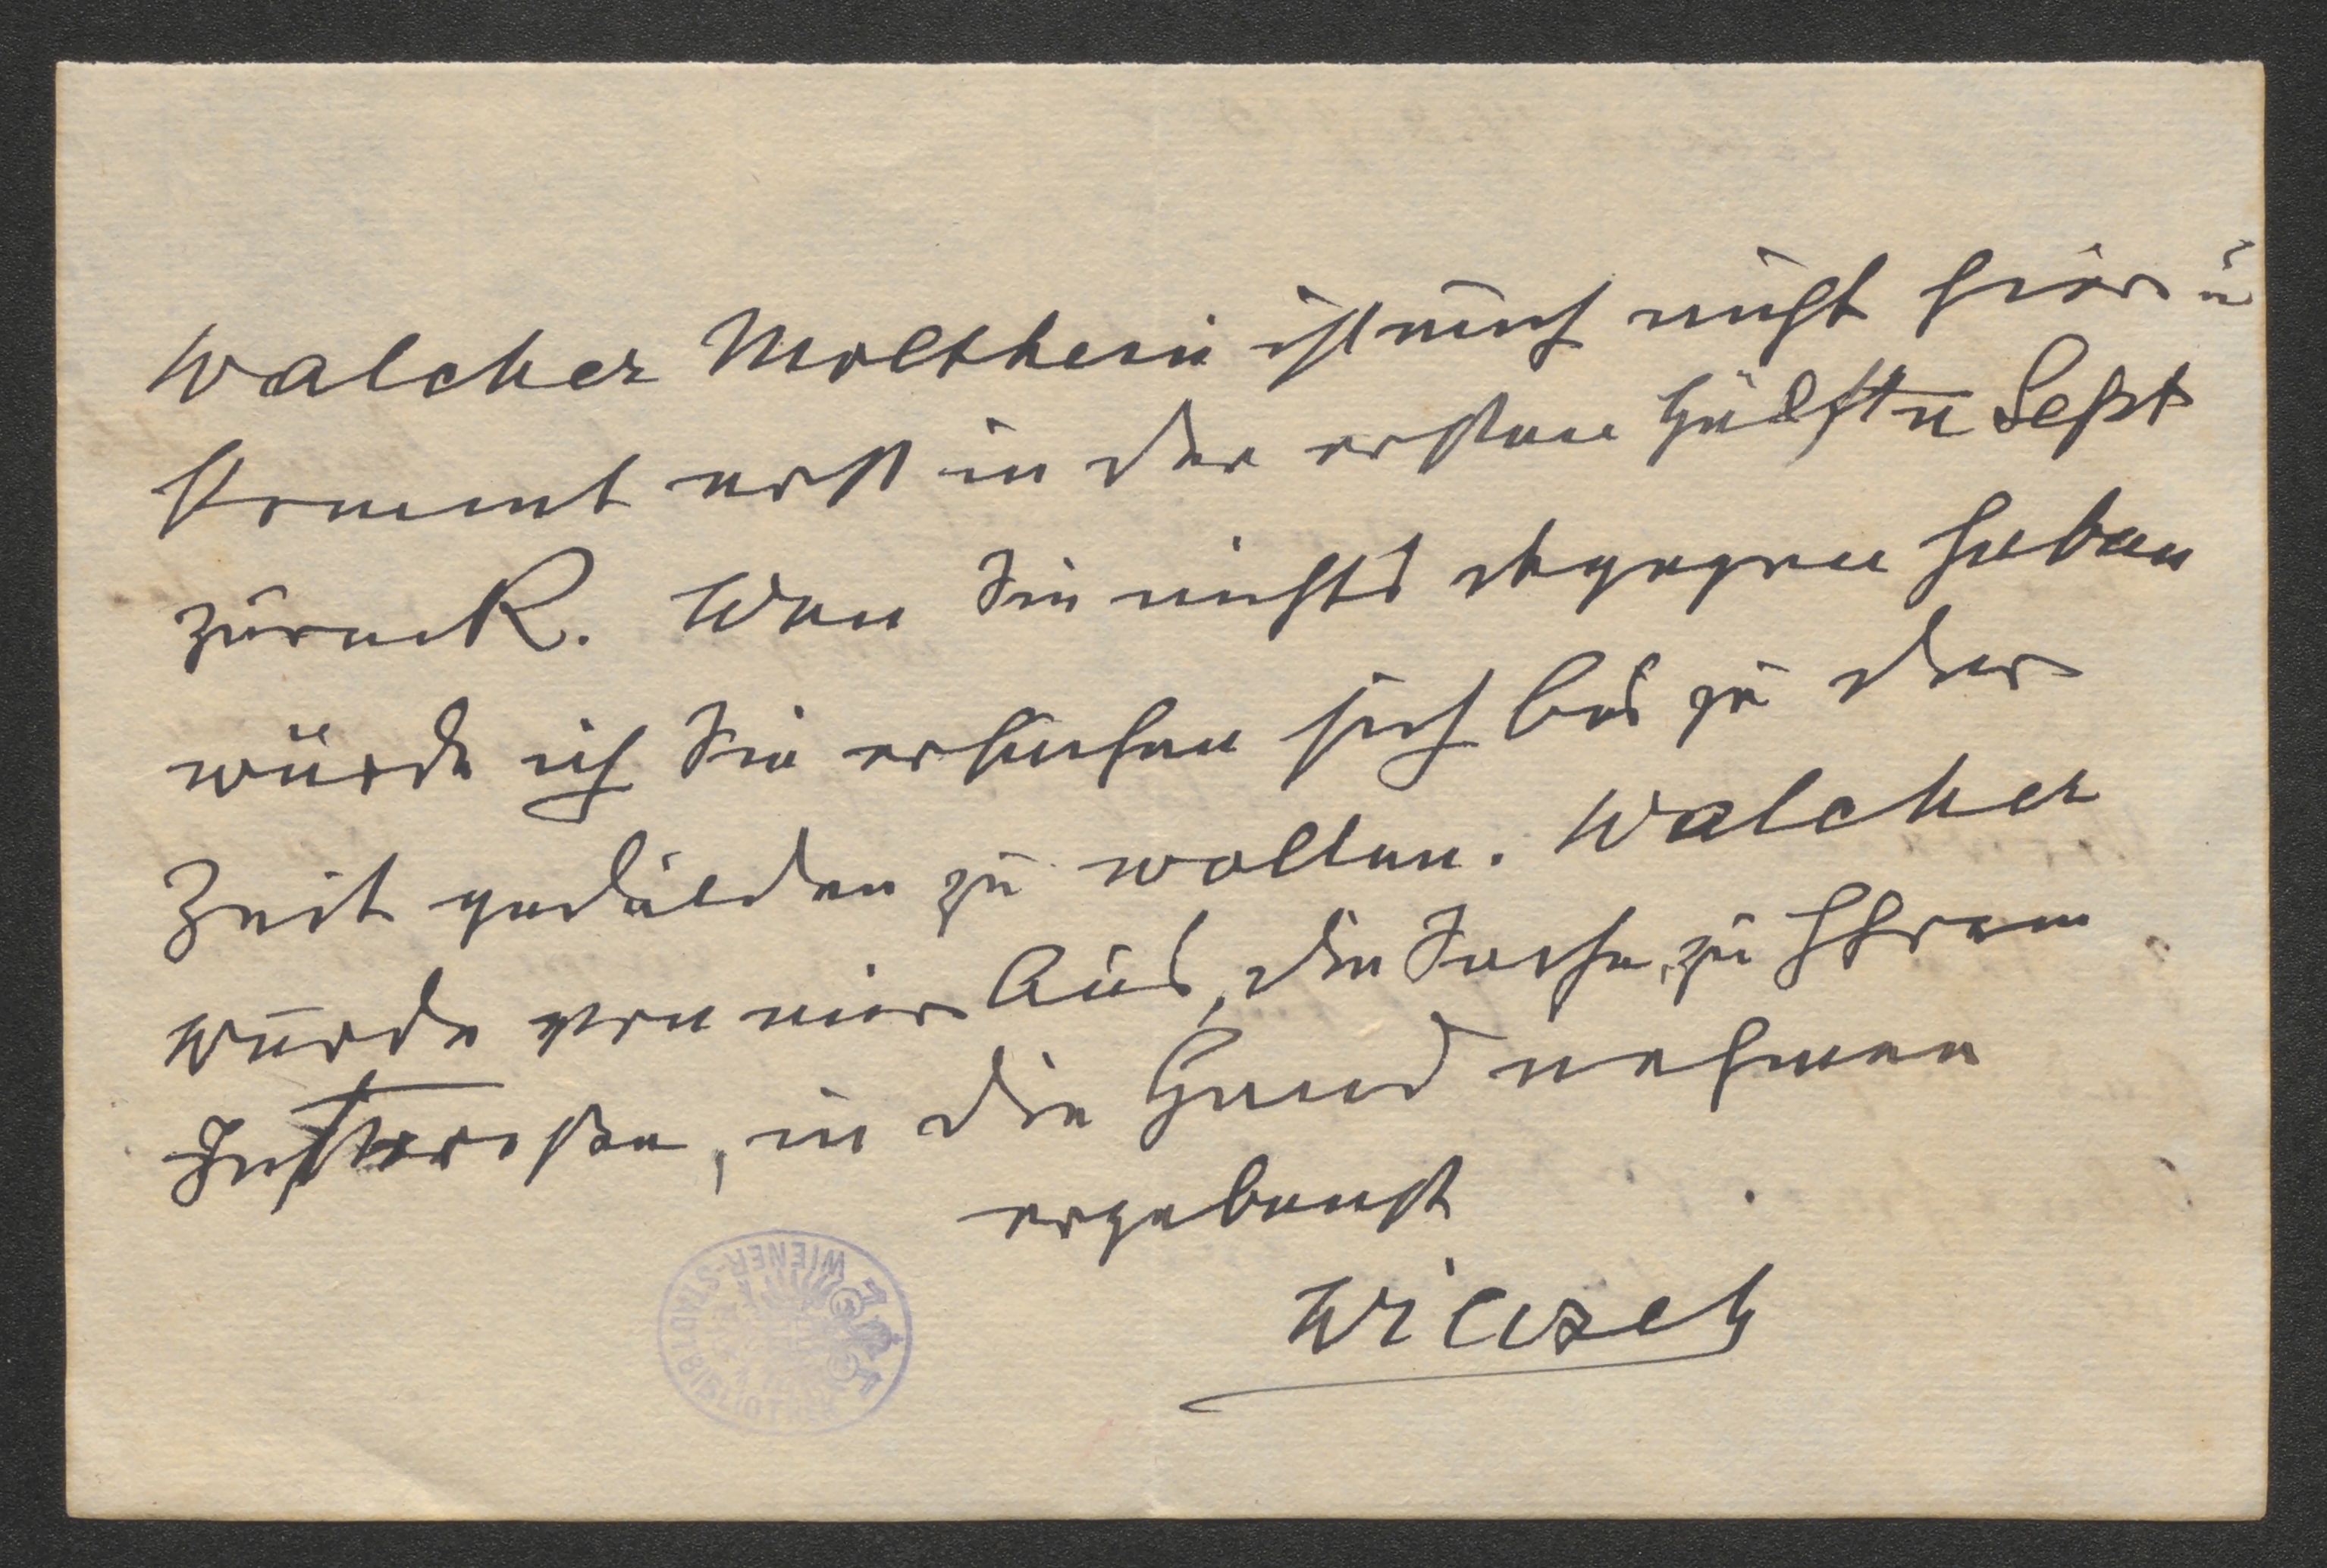 Walcher Molthein ist auch nicht hier u
kommt erst in der ersten Hälfte Sept
zurück. Wen Sie nichts dagegen haben
würde ich Sie ersuchen sich bis zu der
Zeit gedulden zu wollen. Walcher
wurde von mir aus, die Sache, zu Ihrem
Interesse, in die Hand nehmen
ergebenst
Wilczek
WIENER-STADTBIBLIOTHEK